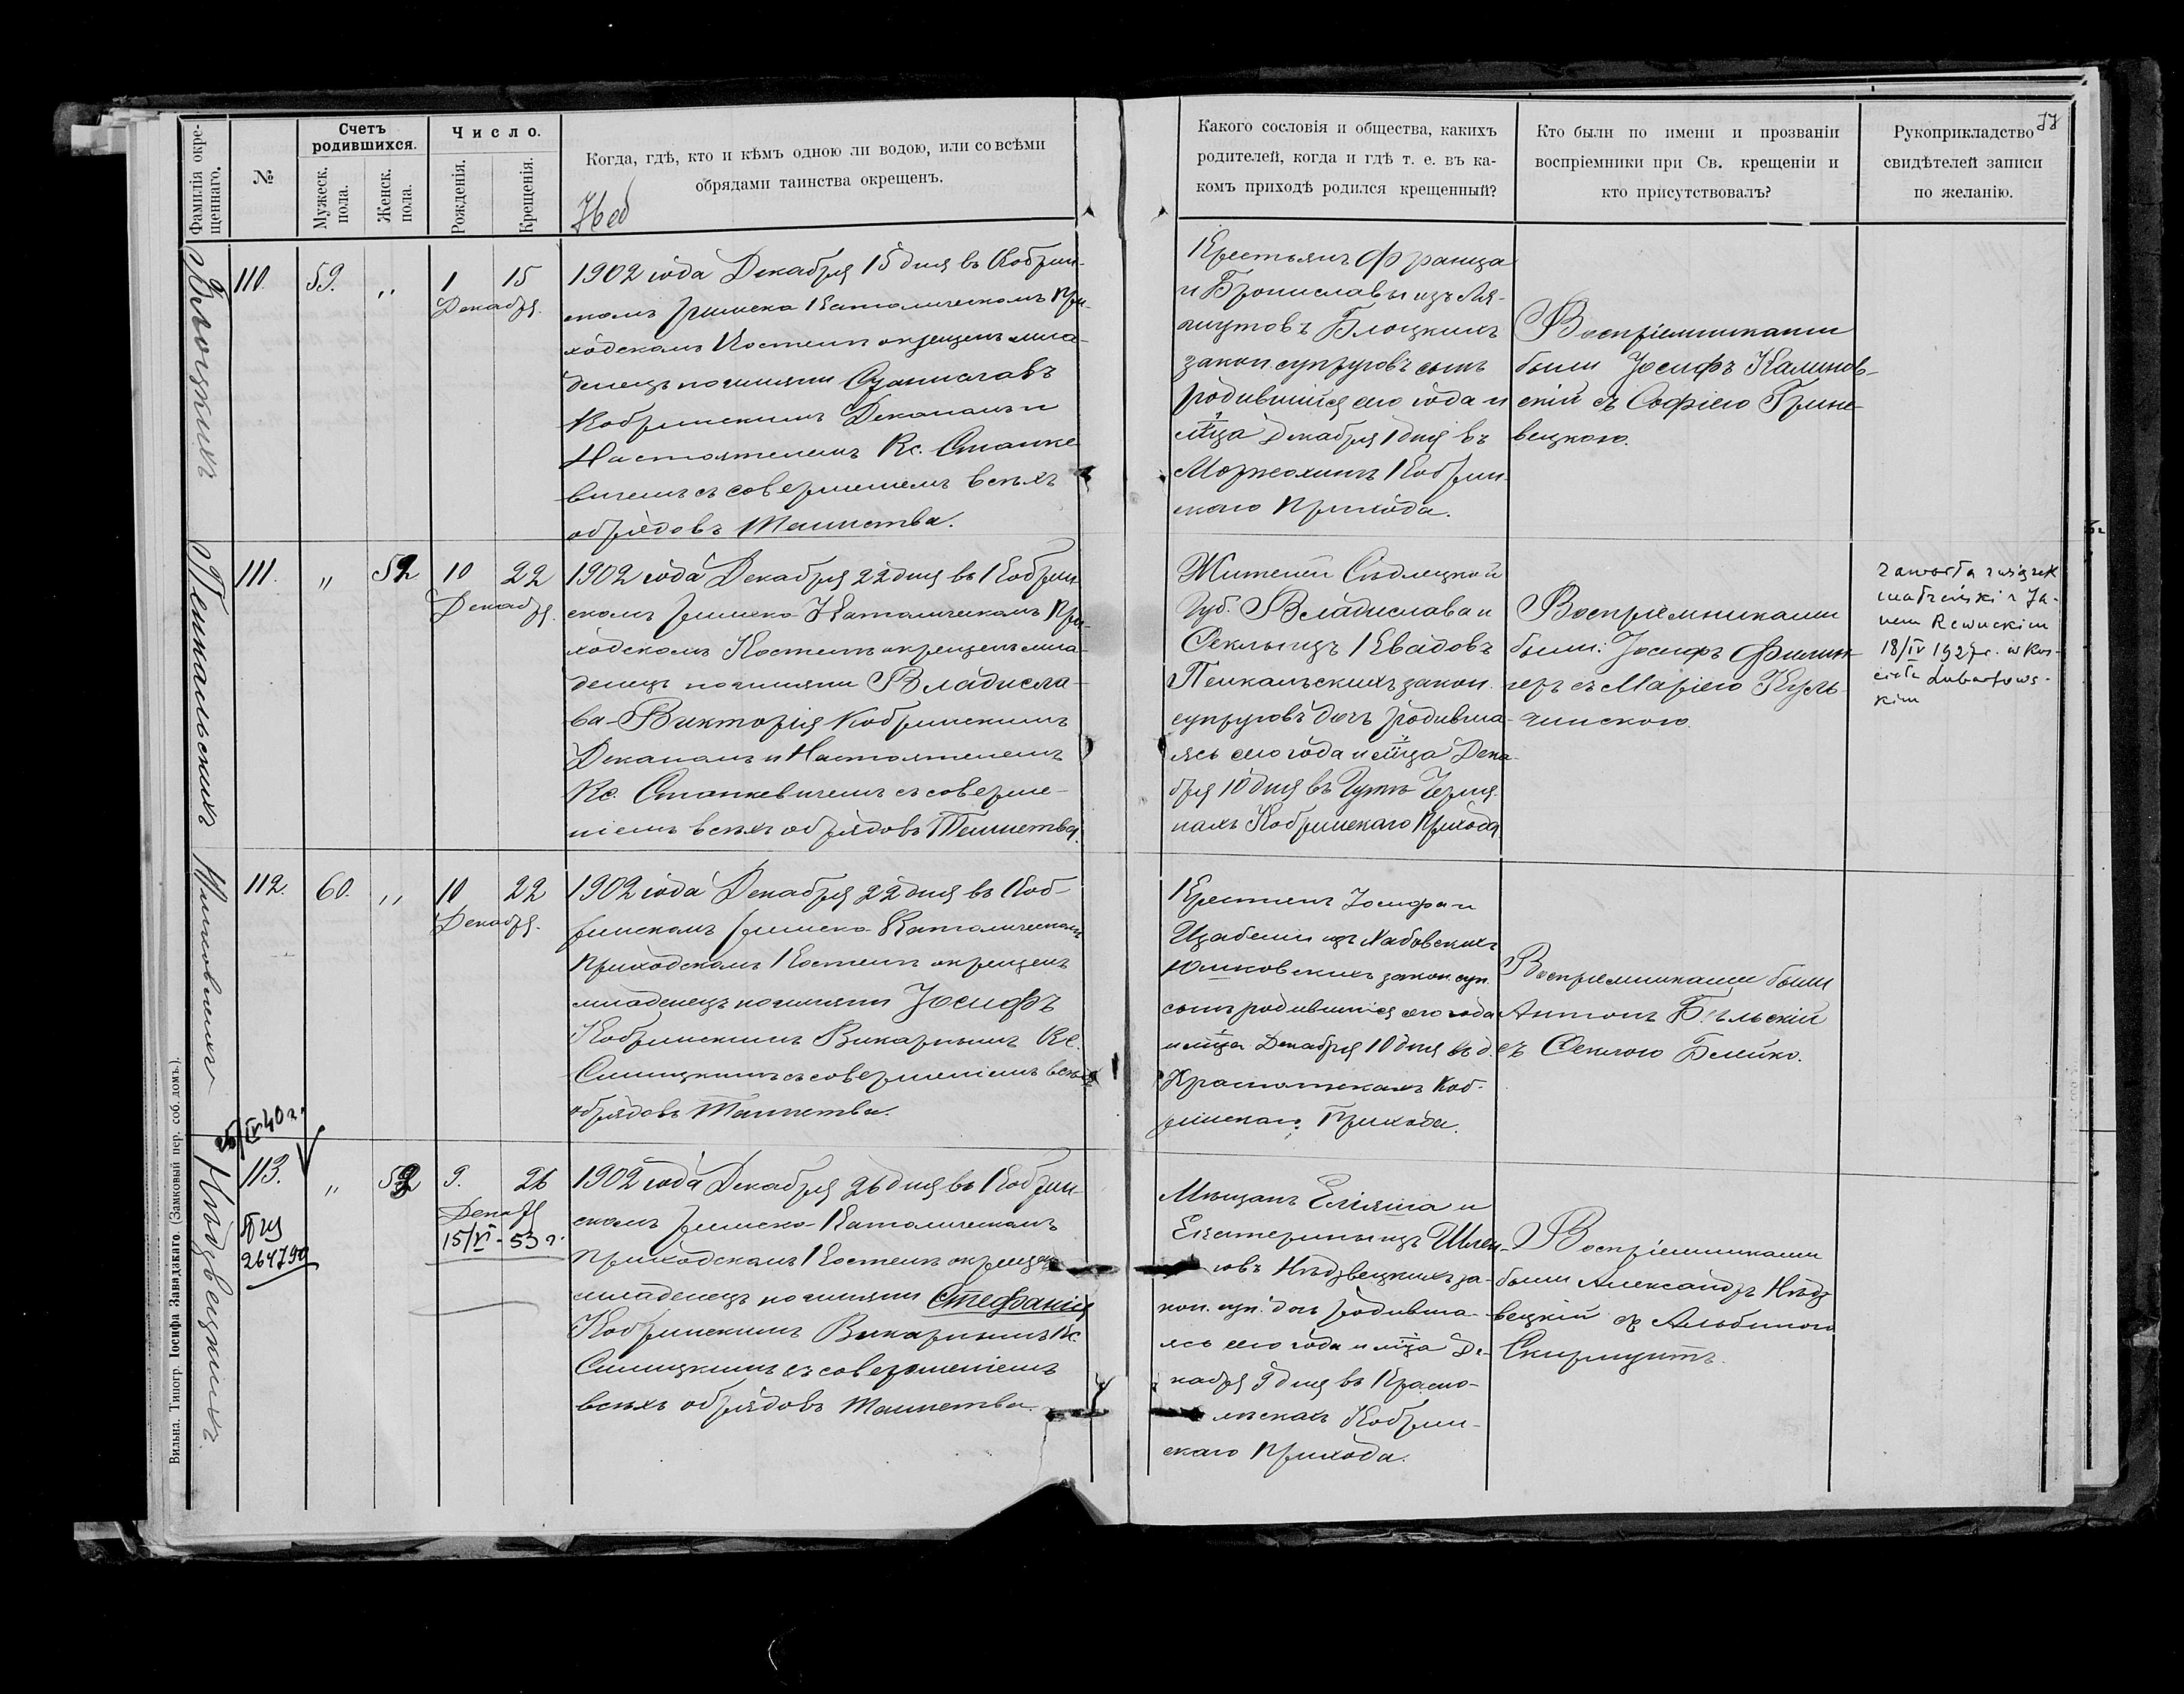 Фамилія окре-
щеннаго.
№
Счетъ
родившихся.
Мужеск.
пола.
Женск.
пола.
Число.
Рожденія.
Крещенія.
Когда, гдѣ, кто и кѣмъ одною ли водою, или со всѣми
обрядами таинства окрещенъ.
Какого сословія и общества, какихъ
родителей, когда и гдѣ т. е. въ ка-
комъ приходѣ родился крещенный?
Кто были по имени и прозванію
воспріемники при Св. крещеніи и
кто присутствовалъ?
Рукоприкладство
свидѣтелей записи
по желанію.
77
Блоцкихъ
110.
59.
"
1
15
Декабря.
1902 года Декабря 15 дня въ Кобрин-
скомъ Римско Католическомъ При-
ходскомъ Костелѣ окрещенъ мла-
денецъ по имени Станиславъ
Кобринскимъ Деканомъ и
Настоятелемъ Кс. Станке
вичемъ съ совершеніемъ всѣхъ
обрядовъ Таинства.
Крестьянъ Франца
и Брониславы изъ
Блоцкихъ
закон. супруговъ сынъ
родившійся сего года и
мѣсца Декабря 1 дня въ
Кобрин-
скаго Прихода.
Воспріемниками
были Іосифъ Калинов-
скій съ Софіею Грине-
вецкою.
Пенкальскихъ
111.
"
52
10
22
Декабря.
1902 года Декабря 22 дня въ Кобрин
скомъ Римско-Католическомъ При-
ходскомъ Костелѣ окрещенъ мла-
денецъ по имени Владисла-
ва-Викторія Кобринскимъ
Деканомъ и Настоятелемъ
Кс. Станкевичемъ съ соверше-
ніемъ всѣхъ обрядовъ Таинства.
Жителей Сѣдлецкой
Губ. Владислава и
Феклы изъ Квадовъ
Пенкальскихъ закон.
супруговъ дочь родивша-
яся сего года и мѣсца Дека-
бря 10 дня въ Гутѣ
Кобринскаго Прихода
Воспріемниками
были: Іосифъ
съ Маріею Куль-
чинскою.
zawarła związek
małżeński z Ja-
nem Rewuckim
18/IV 1927 r. w Koś-
ciele Lubartows-
kim
Юшковскихъ
112.
60.
"
10
22
Декабря.
1902 года Декабря 22 дня въ Коб-
ринскомъ Римско Католическомъ
Приходскомъ Костелѣ окрещенъ
младенецъ по имени Іосифъ
Кобринскимъ Викарнымъ Кс.
съ совершеніемъ всѣхъ
обрядовъ Таинства.
Крестьянъ Іосифа и
Изабелли изъ
Юшковскихъ закон. суп.
сынъ родившійся сего года
и мѣсца Декабря 10 дня въ д.
Коб-
ринскаго Прихода.
Воспріемниками были
Антонъ Бѣльскій
съ Феклою
Нѣдзвецкихъ.
113.
"
52
9.
26
Декабря
15/VI - 53 г.
264790
1902 года Декабря 26 дня въ Кобрин-
скомъ Римско-Католическомъ
Приходскомъ Костелѣ окрещенъ
младенецъ по имени Стефанія
Кобринскимъ Викарнымъ Кс.
съ совершеніемъ
всѣхъ обрядовъ Таинства.
Мѣщанъ и
Екатерины изъ
Нѣдзвецкихъ за-
кон. суп. дочь родивша-
яся сего года и мѣсца Де-
кабря 9 дня въ
Кобрин-
скаго Прихода.
Воспріемниками
были Александръ Нѣдз-
вецкій съ Альбиною
Скирмунтъ.
Вильна. Типогр. Іосифа Завадзкаго. (Замковый пер. соб. домъ.).